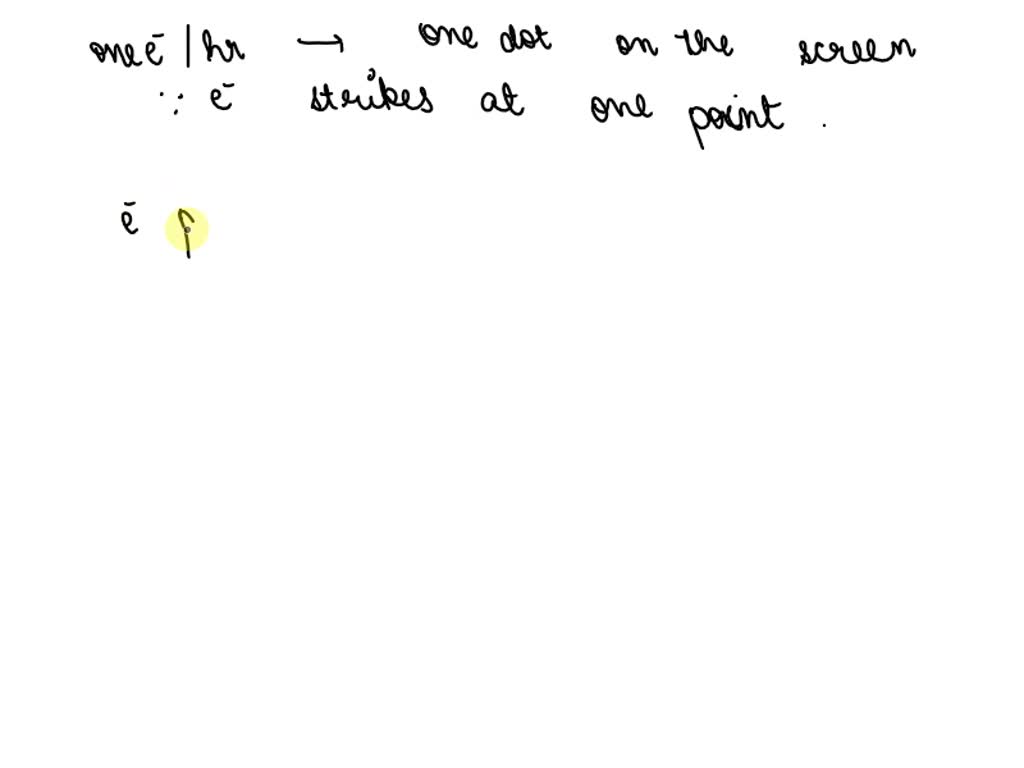 one ē | hr → one dot on the screen
∵ ē strikes at one point .
ē